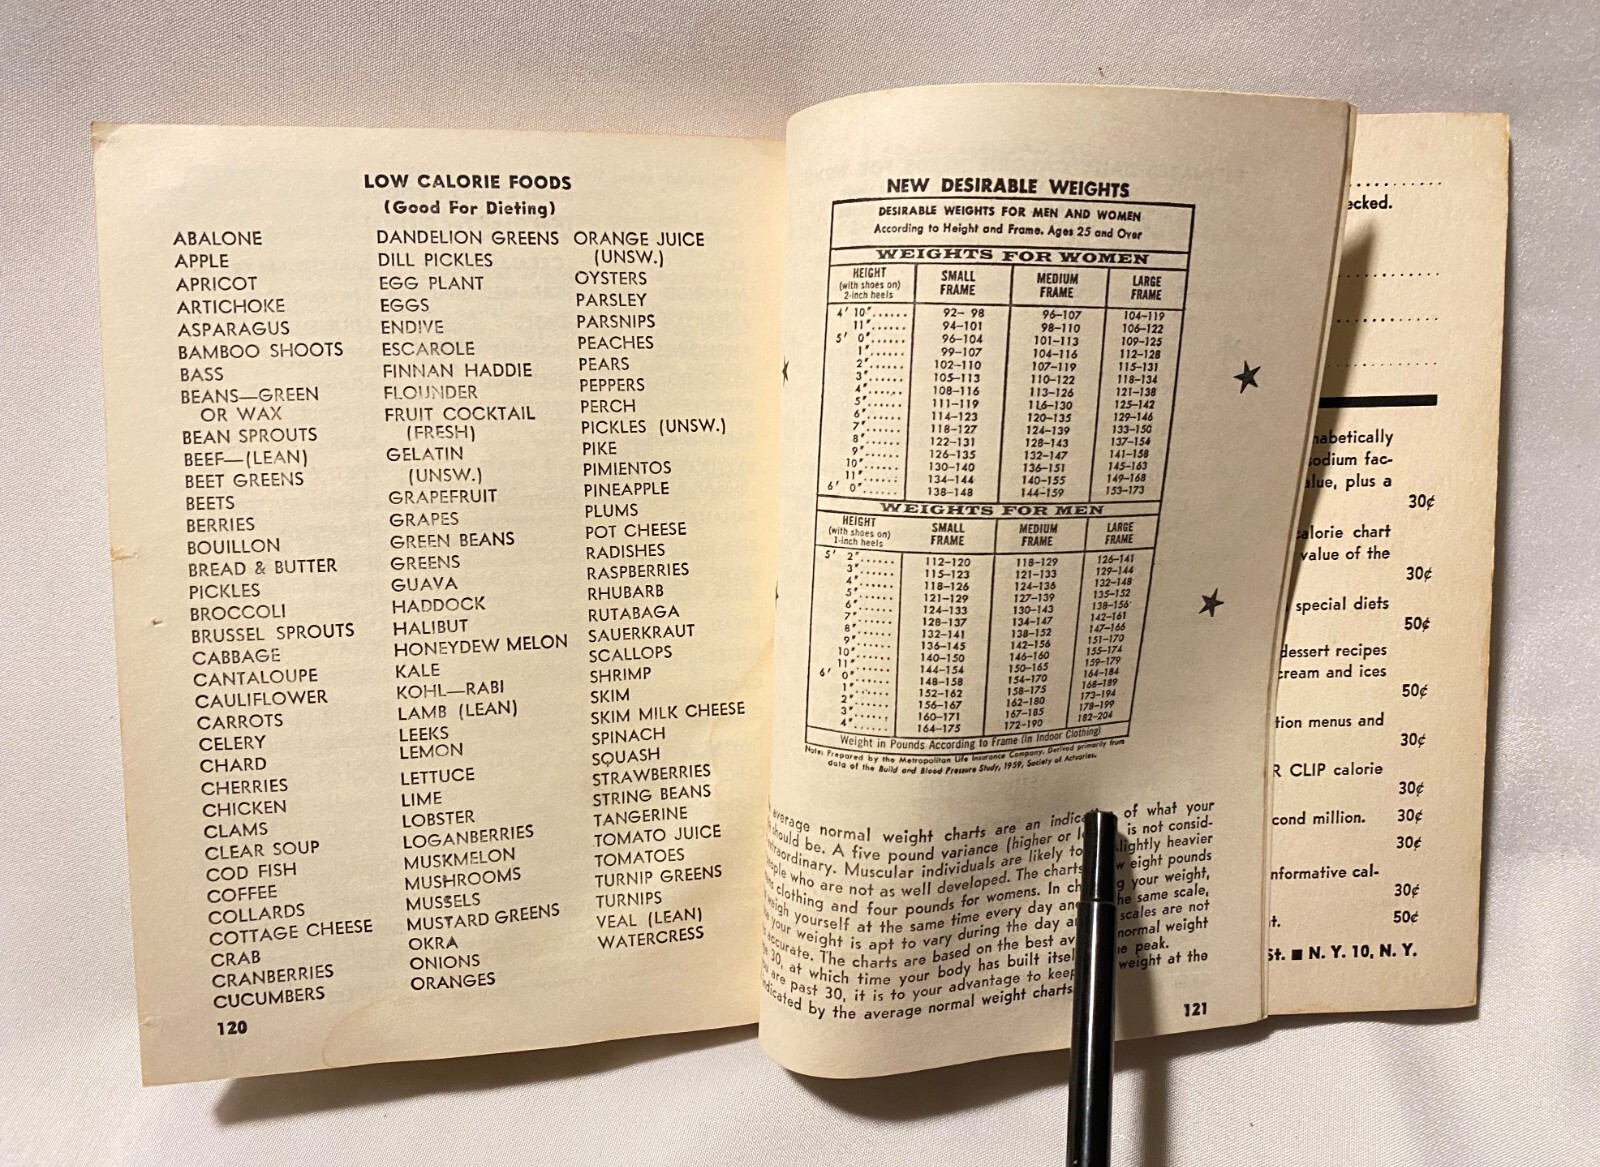 LOW CALORIE FOODS
(Good For Dieting)
ABALONE
APPLE
APRICOT
ARTICHOKE
ASPARAGUS
BAMBOO SHOOTS
BASS
BEANS—GREEN
OR WAX
BEAN SPROUTS
BEEF—(LEAN)
BEET GREENS
BEETS
BERRIES
BOUILLON
BREAD & BUTTER
PICKLES
BROCCOLI
BRUSSEL SPROUTS
CABBAGE
CANTALOUPE
CAULIFLOWER
CARROTS
CELERY
CHARD
CHERRIES
CHICKEN
CLAMS
CLEAR SOUP
COD FISH
COFFEE
COLLARDS
COTTAGE CHEESE
CRAB
CRANBERRIES
CUCUMBERS
DANDELION GREENS
DILL PICKLES
EGG PLANT
EGGS
ENDIVE
ESCAROLE
FINNAN HADDIE
FLOUNDER
FRUIT COCKTAIL
(FRESH)
GELATIN
(UNSW.)
GRAPEFRUIT
GRAPES
GREEN BEANS
GREENS
GUAVA
HADDOCK
HALIBUT
HONEYDEW MELON
KALE
KOHL—RABI
LAMB (LEAN)
LEEKS
LEMON
LETTUCE
LIME
LOBSTER
LOGANBERRIES
MUSKMELON
MUSHROOMS
MUSSELS
MUSTARD GREENS
OKRA
ONIONS
ORANGES
ORANGE JUICE
(UNSW.)
OYSTERS
PARSLEY
PARSNIPS
PEACHES
PEARS
PEPPERS
PERCH
PICKLES (UNSW.)
PIKE
PIMIENTOS
PINEAPPLE
PLUMS
POT CHEESE
RADISHES
RASPBERRIES
RHUBARB
RUTABAGA
SAUERKRAUT
SCALLOPS
SHRIMP
SKIM
SKIM MILK CHEESE
SPINACH
SQUASH
STRAWBERRIES
STRING BEANS
TANGERINE
TOMATO JUICE
TOMATOES
TURNIP GREENS
TURNIPS
VEAL (LEAN)
WATERCRESS
120
NEW DESIRABLE WEIGHTS
DESIRABLE WEIGHTS FOR MEN AND WOMEN
According to Height and Frame. Ages 25 and Over
WEIGHTS FOR WOMEN
HEIGHT (with shoes on) 2-inch heels SMALL FRAME MEDIUM FRAME LARGE FRAME
4' 10"...... 92– 98 96–107 104–119
11"...... 94–101 98–110 106–122
5' 0"...... 96–104 101–113 109–125
1"...... 99–107 104–116 112–128
2"...... 102–110 107–119 115–131
3"...... 105–113 110–122 118–134
4"...... 108–116 113–126 121–138
5"...... 111–119 116–130 125–142
6"...... 114–123 120–135 129–146
7"...... 118–127 124–139 133–150
8"...... 122–131 128–143 137–154
9"...... 126–135 132–147 141–158
10"...... 130–140 136–151 145–163
11"...... 134–144 140–155 149–168
6' 0"...... 138–148 144–159 153–173
WEIGHTS FOR MEN
HEIGHT (with shoes on) 1-inch heels SMALL FRAME MEDIUM FRAME LARGE FRAME
5' 2"...... 112–120 118–129 126–141
3"...... 115–123 121–133 129–144
4"...... 118–126 124–136 132–148
5"...... 121–129 127–139 135–152
6"...... 124–133 130–143 138–156
7"...... 128–137 134–147 142–161
8"...... 132–141 138–152 147–166
9"...... 136–145 142–156 151–170
10"...... 140–150 146–160 155–174
11"...... 144–154 150–165 159–179
6' 0"...... 148–158 154–170 164–184
1"...... 152–162 158–175 168–189
2"...... 156–167 162–180 173–194
3"...... 160–171 167–185 178–199
4"...... 164–175 172–190 182–204
Weight in Pounds According to Frame (In Indoor Clothing)
Note: Prepared by the Metropolitan Life Insurance Company. Derived primarily from
data of the Build and Blood Pressure Study, 1959, Society of Actuaries.
average normal weight charts are an of what your
should be. A five pound variance (higher or is not consid-
Muscular individuals are likely to heavier
who are not as well developed. The charts eight pounds
clothing and four pounds for womens. In your weight,
weigh yourself at the same time every day same scale,
your weight is apt to vary during the day scales are not
accurate. The charts are based on the best normal weight
30, at which time your body has built peak.
are past 30, it is to your advantage to keep weight at the
by the average normal weight charts
121
30¢
calorie chart
value of the
30¢
special diets
50¢
dessert recipes
cream and ices
50¢
menus and
30¢
CLIP calorie
30¢
million. 30¢
30¢
30¢
50¢
St. ■ N. Y. 10, N. Y.